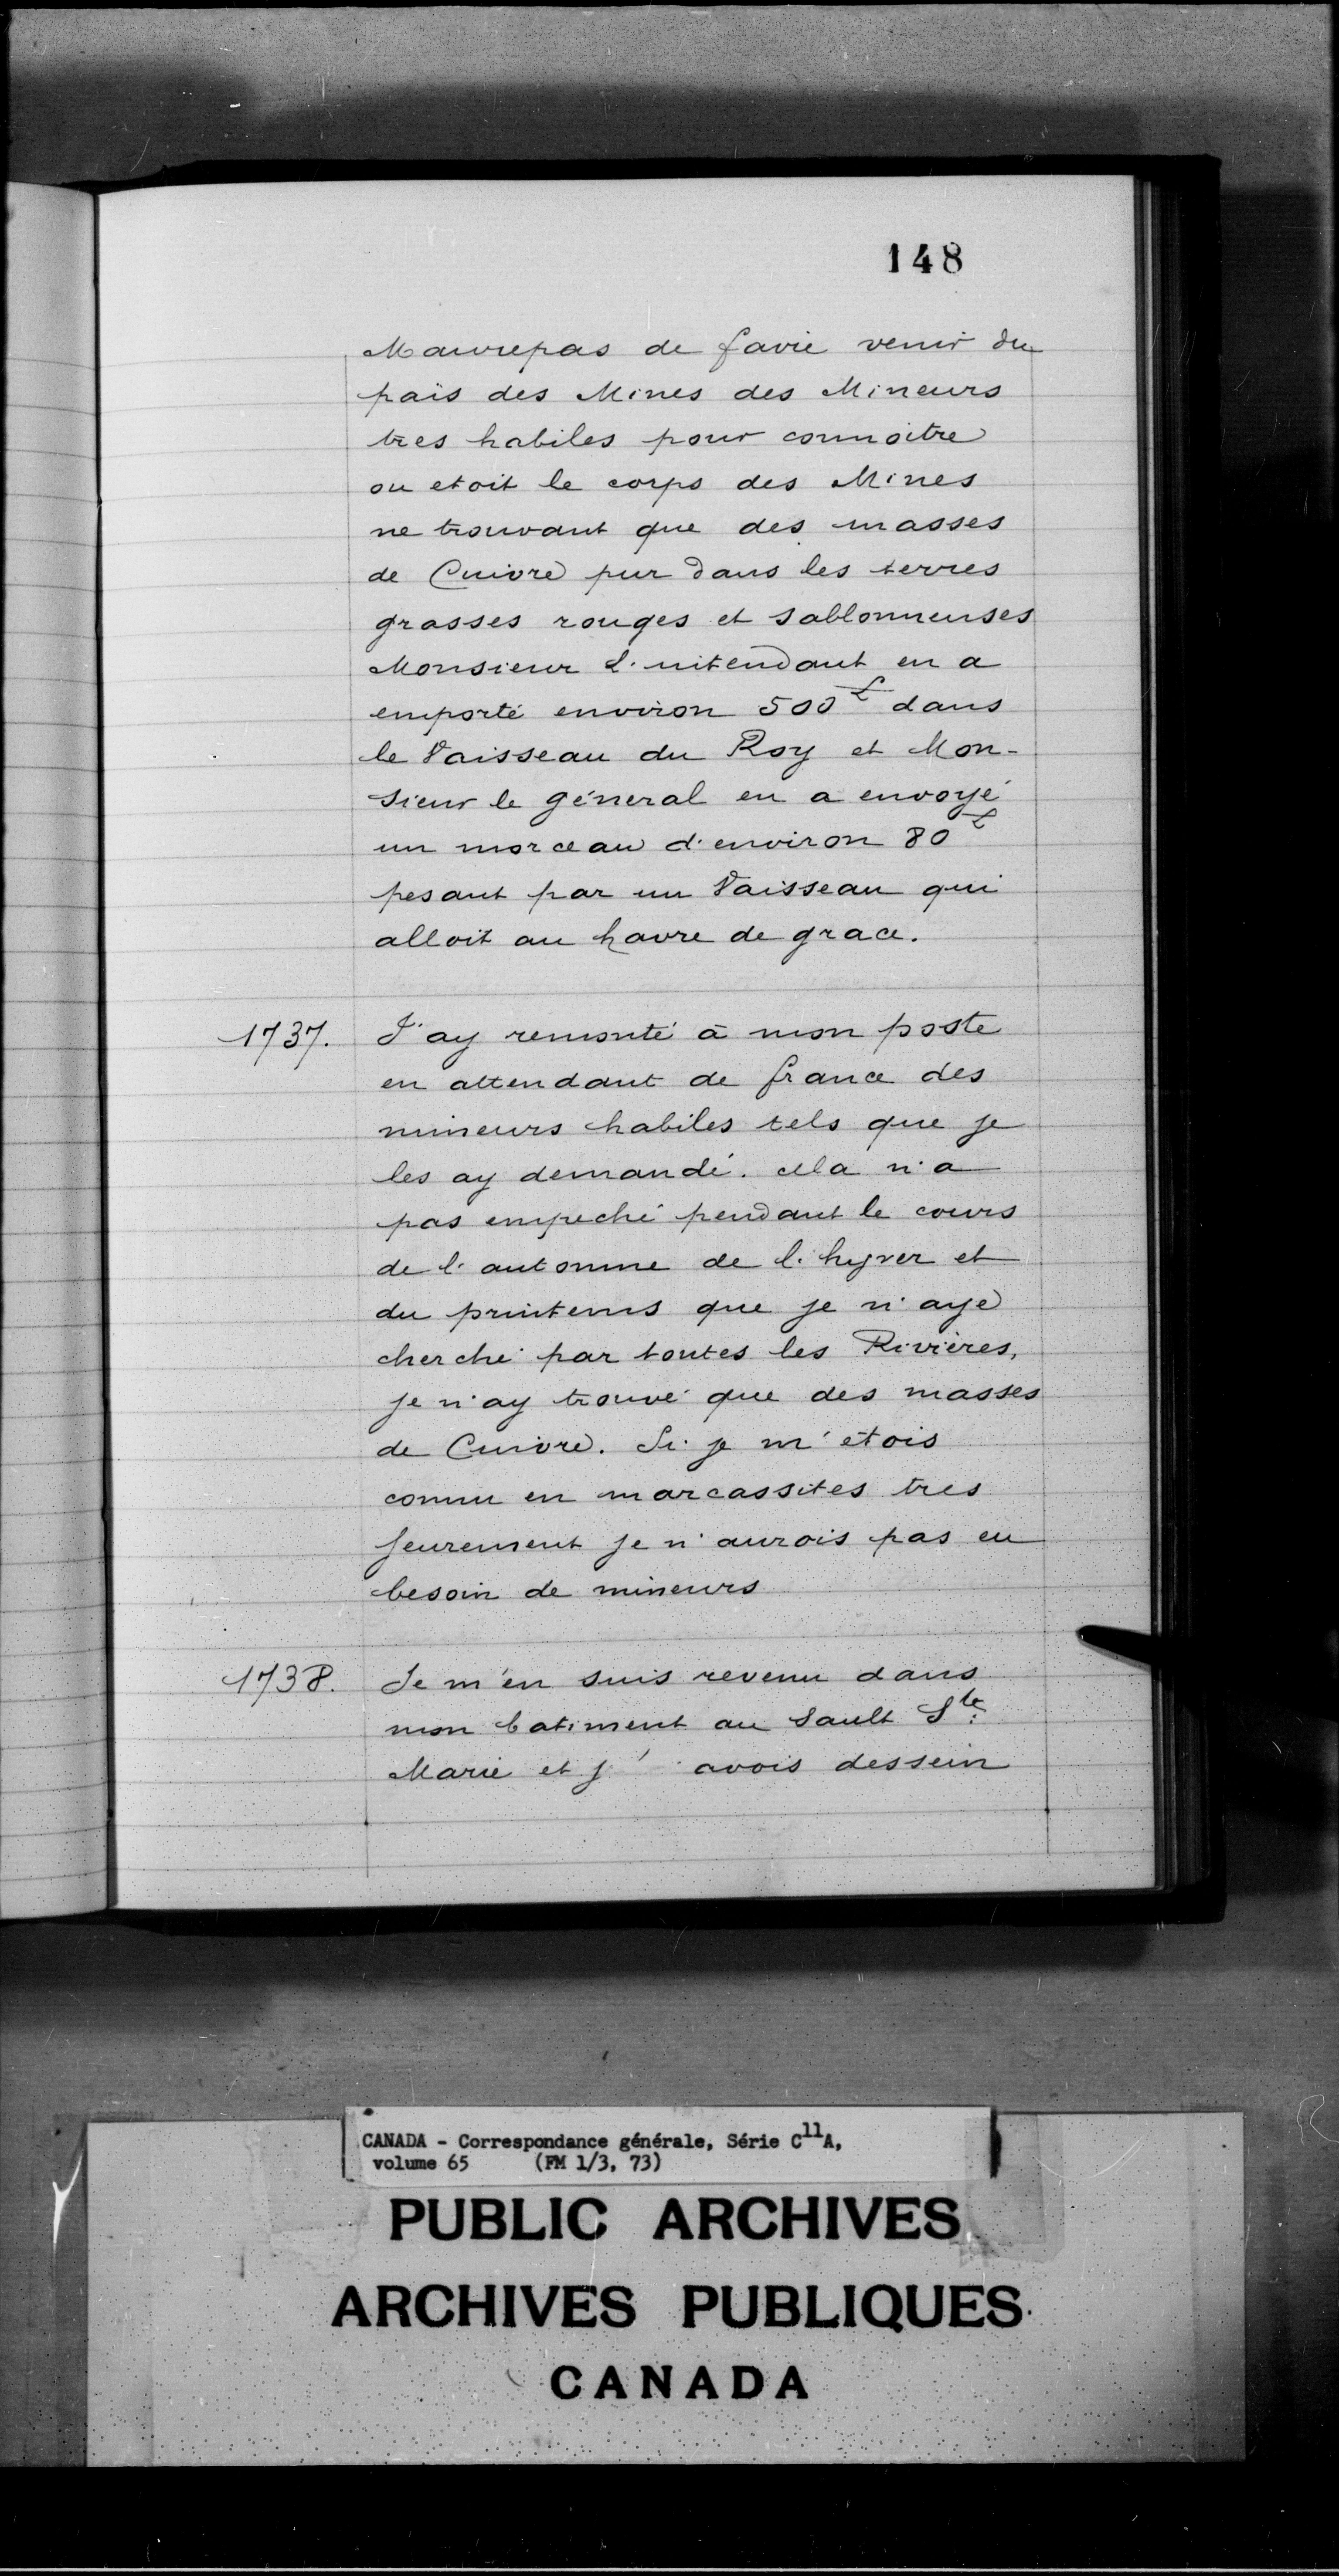 148
Maurepas de faire venir du
païs des Mines des Mineurs
tres habiles pour connoitre
ou etoit le corps des Mines
ne trouvant que des masses
de Cuivre pur dans les terres
grasses rouges et sablonneuses
Monsieur L'intendant en a
emporté environ 500 ₶ dans
le Vaisseau du Roy et Mon-
sieur le géneral en a envoyé
un morceau d'environ 80 ₶
pesant par un Vaisseau qui
alloit au havre de grace.
1737. J'ay remonté à mon poste
en attendant de france des
mineurs habiles tels que je
les ay demandé. cela n'a
pas empeché pendant le cours
de l'automne de l'hyver et
du printems que je n'aye
cherché par toutes les Rivières,
je n'ay trouvé que des masses
de Cuivre. Si je m'étois
connu en marcassites tres
seurement je n'aurois pas eu
besoin de mineurs
1738. Je m'en suis revenu dans
mon batiment au Sault Ste
Marie et j'avois dessein
CANADA - Correspondance générale, Série C11A,
volume 65 (FM 1/3, 73)
PUBLIC ARCHIVES
ARCHIVES PUBLIQUES
CANADA